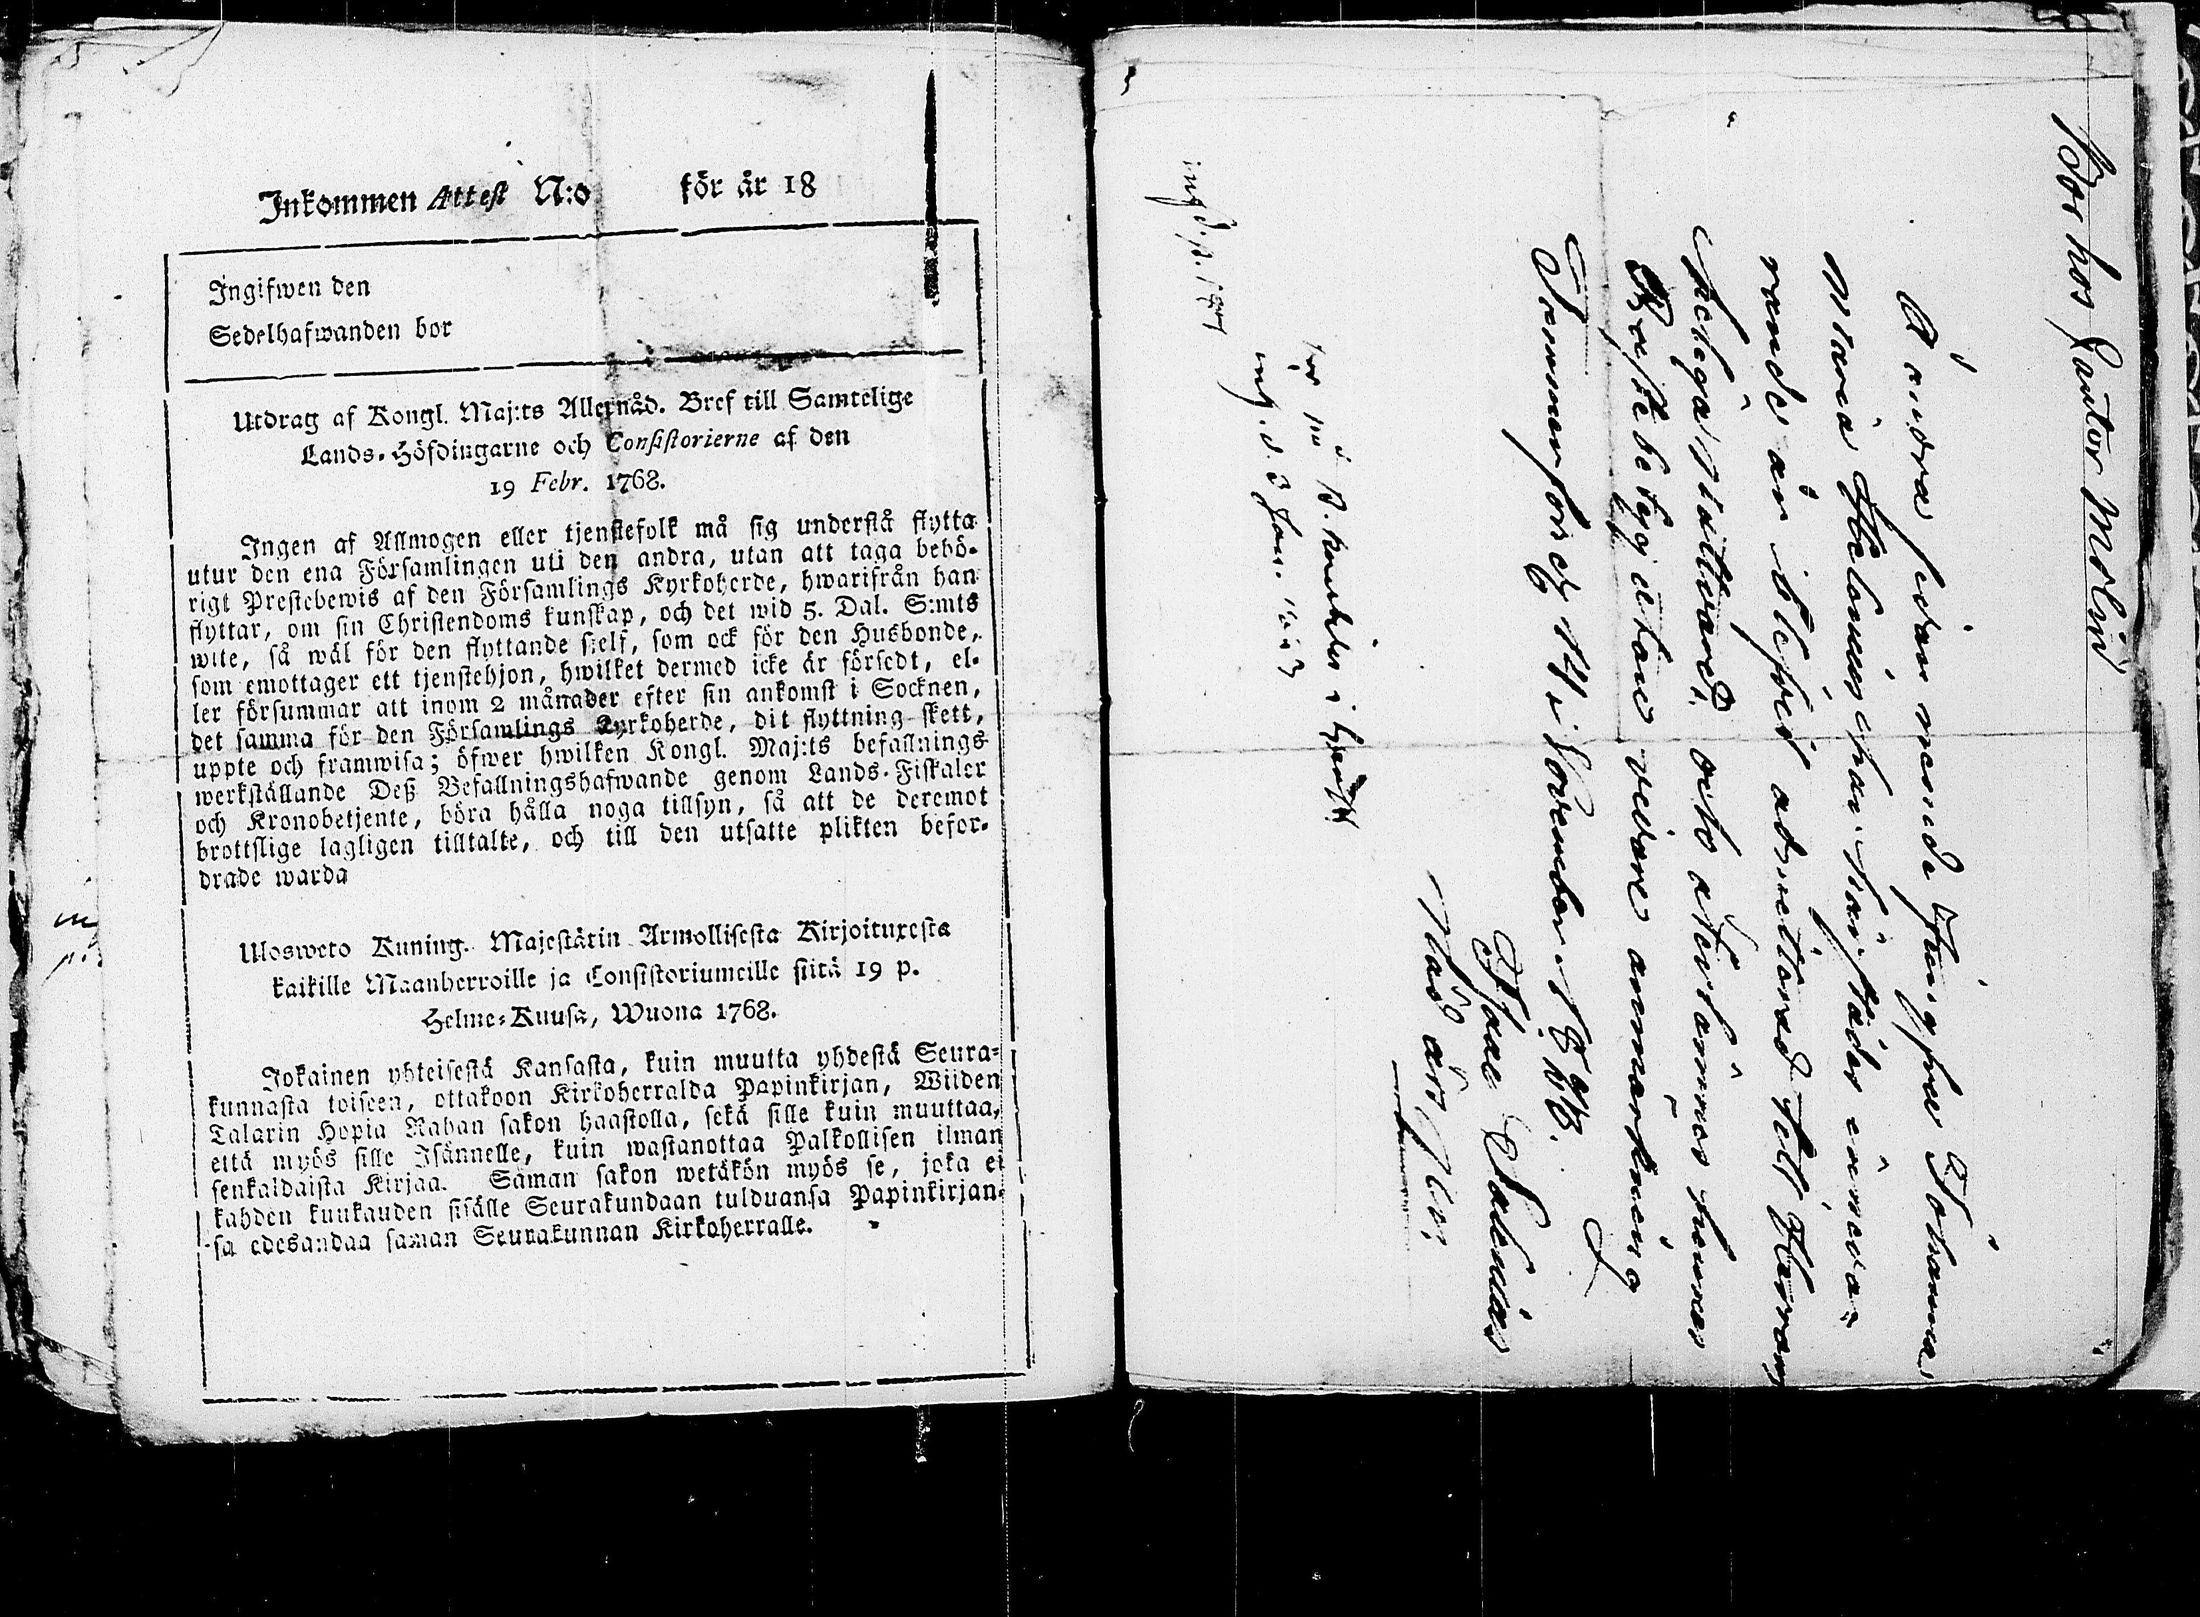 Inkommen Attest N:o för år 18
Ingifwen den
Sedelhafwanden bor
Utdrag af Kongl. Maj:ts Allernåd. Bref till Samtelige
Lands-Höfdingarne och Consistorierne af den
19 Febr. 1768.
Ingen af Allmogen eller tjenstefolk må sig understå flytta
utur den ena Församlingen uti den andra, utan att taga behö-
rigt Prestebewis af den Församlings Kyrkoherde, hwarifrån han
flyttar, om sin Christendoms kunskap, och det wid 5. Dal. S:mts
wite, så wäl för den flyttande sjelf, som ock för den Husbonde,
som emottager ett tjenstehjon, hwilket dermed icke är försedt, el-
ler försummar att inom 2 månader efter sin ankomst i Socknen,
det samma för den Församlings Kyrkoherde, dit flyttning skett,
uppte och framwisa; öfwer hwilken Kongl. Maj:ts befallnings
werkställande Deß Befallningshafwande genom Lands-Fiskaler
och Kronobetjente, böra hålla noga tillsyn, så att de deremot
brottslige lagligen tilltalte, och till den utsatte plikten befor-
drade warda
Ulosweto Kuning. Majestätin Armollisesta Kirjoituxesta
kaikille Maanherroille ja Consistoriumeille siitä 19 p.
Helme-Kuusa, Wuona 1768.
Jokainen yhteisestä Kansasta, kuin muutta yhdestä Seura-
kunnasta toiseen, ottakoon Kirkoherralda Papinkirjan, Wiiden
Talarin Hopia Rahan sakon haastolla, sekä sille kuin muuttaa,
että myös sille Isännelle, kuin wastanottaa Palkollisen ilman
senkaldaista Kirjaa. Saman sakon wetäkön myös se, joka ei
kahden kuukauden sisälle Seurakundaan tulduansa Papinkirjan-
sa edesandaa saman Seurakunnan Kirkoherralle.
Bor hos Cantor Molin
Å andra sidan nämnda Johanna
Maria har härstädes
rande år blifvit admitterad till Herrans
Heliga Nattvard, och
utan vidare anmärkning
Tammerfors d. 14 November 1848.
Isaac Salenius